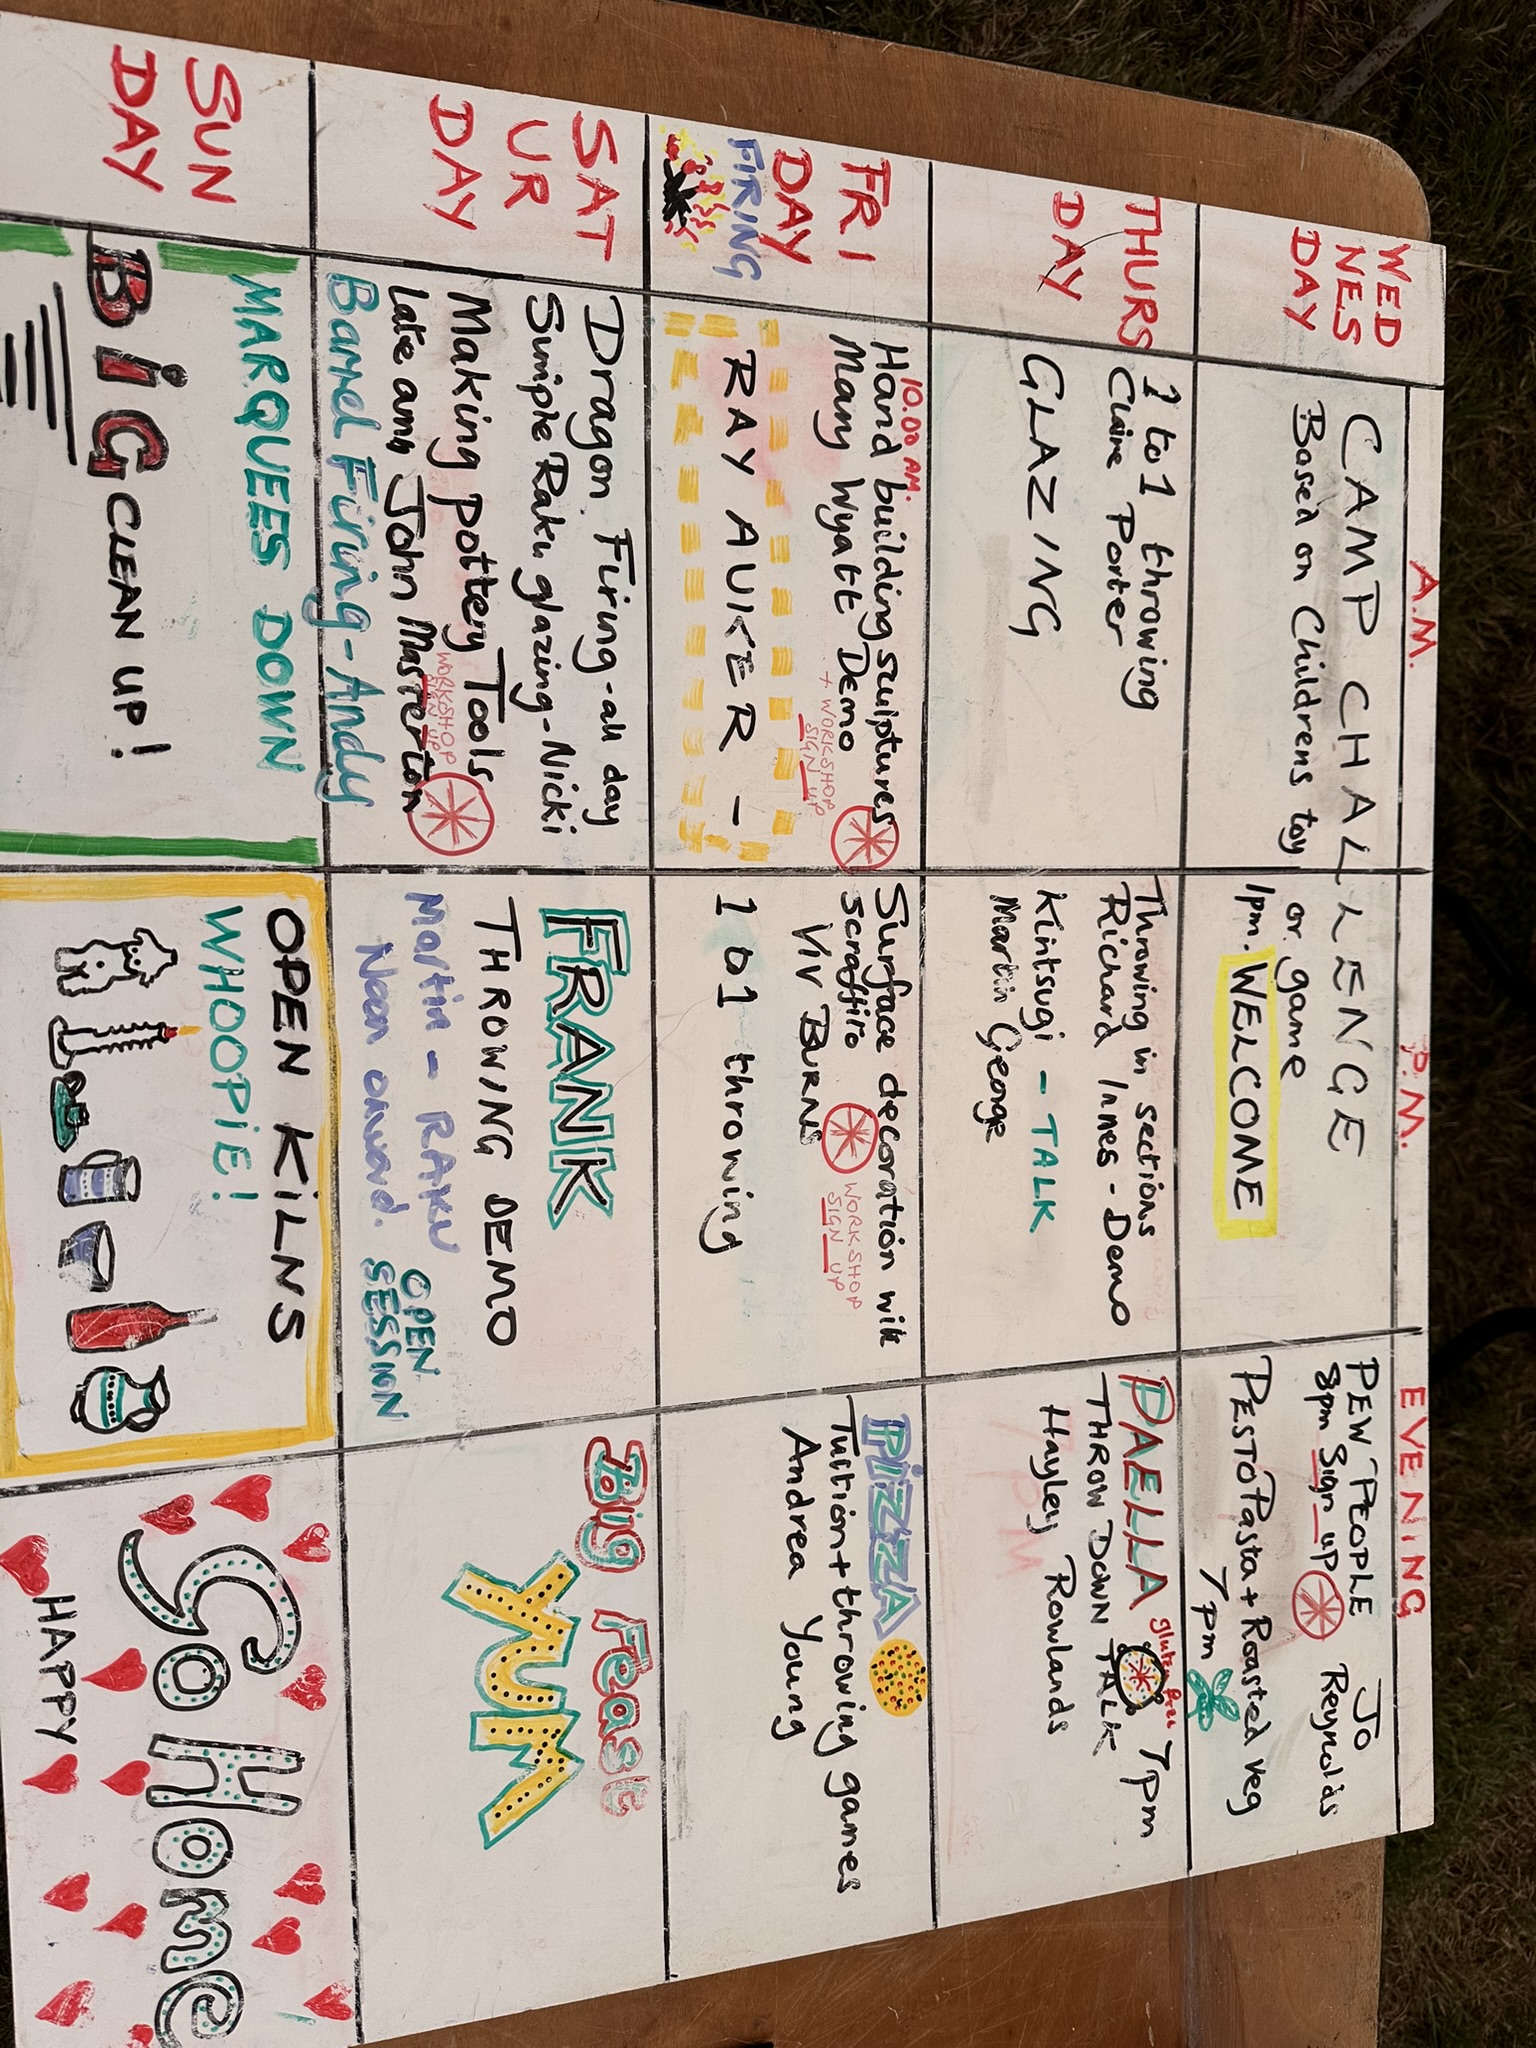 A.M. P.M. EVENING
WED
NES
DAY
CAMP CHALLENGE
Based on Childrens toy or game
1pm. WELCOME
PEW PEOPLE Jo
8pm Sign up Reynolds
PESTO Pasta + Roasted veg
7pm
THURS
DAY
1 to 1 throwing
Claire Porter
GLAZING
Throwing in sections
Richard Innes - Demo
Kintsugi - TALK
Martin George
PAELLA gluten free 7pm
THROW DOWN TALK
Hayley Rowlands
FRI
DAY
FIRING
10.00 AM.
Hand building sculptures
Mary Wyatt Demo
+ WORKSHOP
SIGN UP
RAY AUKER -
Surface decoration wik
scraffiro
VIV BURNS
WORKSHOP
SIGN UP
1 to 1 throwing
PIZZA
Tuition + throwing games
Andrea Young
SAT
UR
DAY
Dragon Firing - all day
Simple Raku glazing - Nicki
Making pottery Tools
late am John Masterton
WORKSHOP
SIGN UP
Barrel Firing - Andy
FRANK
THROWING DEMO
Martin - RAKU
Noon onward.
OPEN
SESSION
Big Feast
YUM
SUN
DAY
MARQUEES DOWN
BiG CLEAN UP!
OPEN KiLNS
WHOOPiE!
Go Home
HAPPY